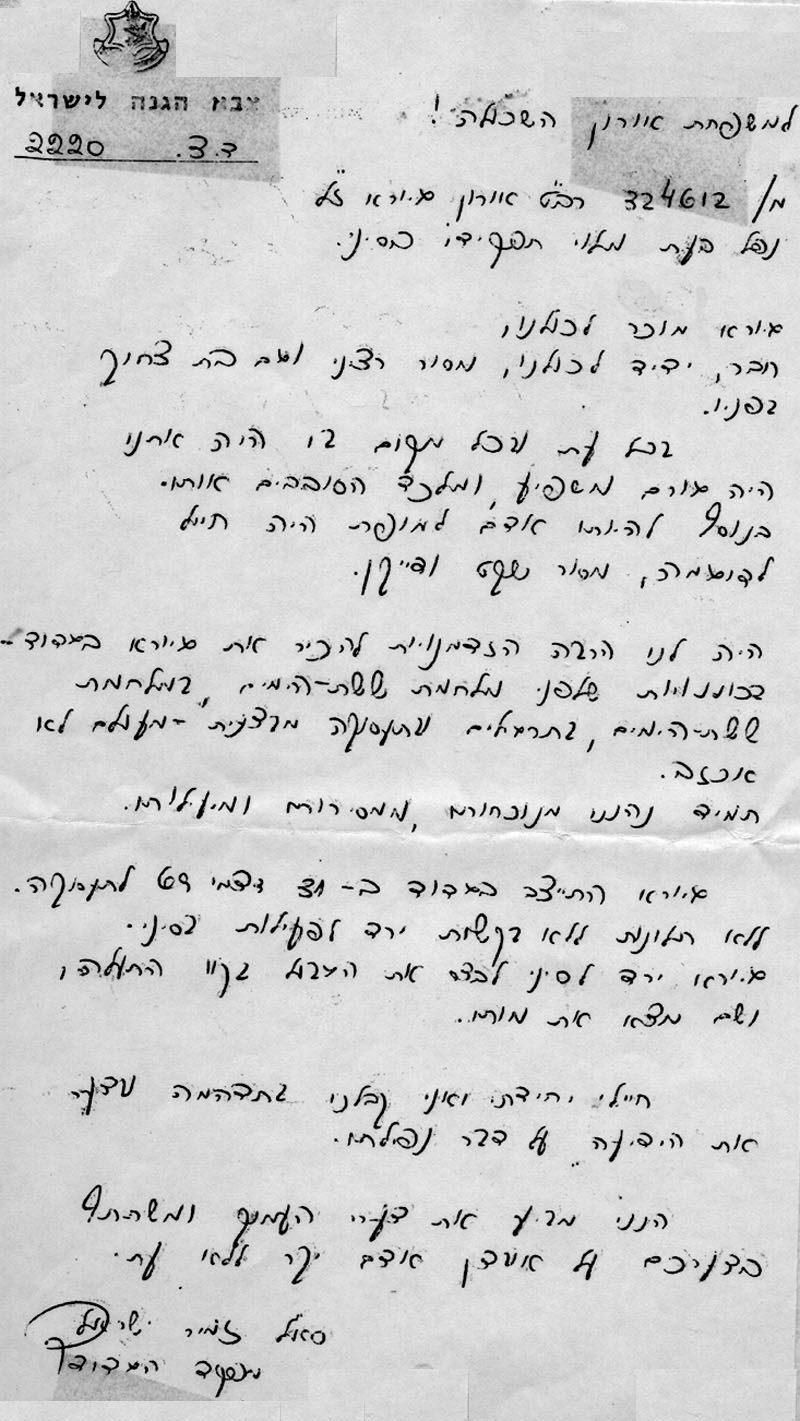 צבא הגנה לישראל
ד.צ. 2220
למשפחת אורון השכולה!
מ/ 324612 רב"ט אורון גיורא ז"ל
נפל בעת מלוי תפקידו בסיני.
גיורא מוכר לכולנו,
חבר, ידיד לכולנו, מסור רציני ועם בת צחוק
בפניו.
בכל עת ובכל מקום בו היה אתנו
היה גורם משפיע, ומלכד הסובבים אותו.
בנוסף להיותו אדם למופת היה חייל
לדוגמה, מסור שקט ודייקן.
היה לנו הרבה הזדמנויות להכיר את גיורא בגדוד -
בכוננויות שלפני מלחמת ששת-הימים, במלחמת
ששת-הימים, בתרגילים ותעסוקה מבצעית - מעולם לא
אכזב.
תמיד נהננו מנוכחותו, ממסירותו ומיעילותו.
גיורא התייצב בגדוד ב- 31 דצמ' 69 לתעסוקה.
ללא תלונות ללא בקשות ירד לפעילות בסיני.
גיורא ירד לסיני לבצר את הגבול בקוו התעלה,
ושם מצא את מותו.
חיילי יחידתי ואני קבלנו בתדהמה וצער
את הידיעה על דבר נפילתו.
הנני מביע את צערי העמוק ומשתתף
בצערכם על אובדן אדם יקר ללא עת.
סא"ל זמיר ישראל
מפקד הגדוד